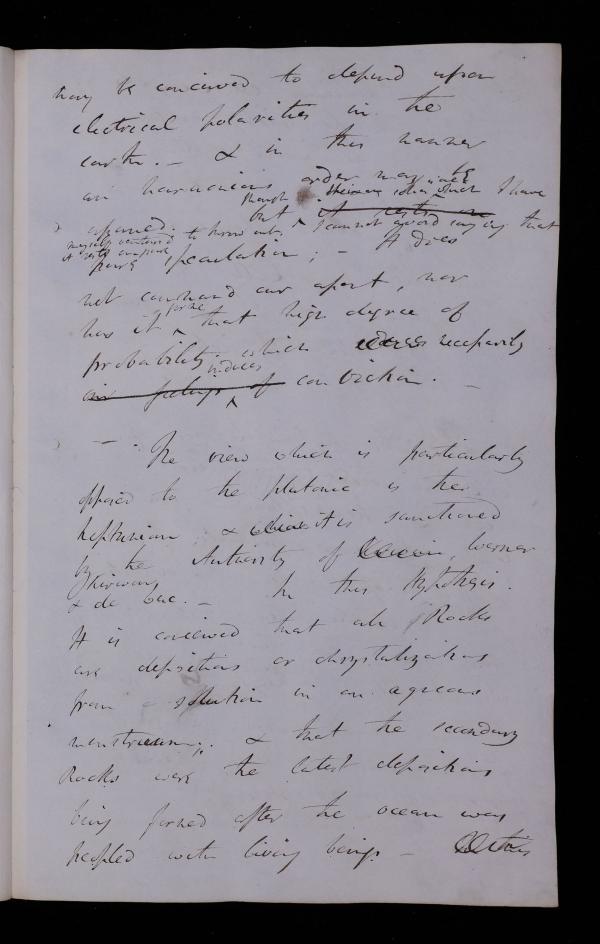 may be conceived to depend upon
electrical polarities in the
earth. – & in this manner
an harmonious order may be
though these are ideas which I have
assumed. but it rests on I cannot avoid saying that
myself ventured to throw out,
it rests on pure
pure speculation; – It does
not command our assent, nor
has it that high degree of
probability. which necessarily
induces
an feelings of conviction. –
– The view which is particularly
opposed to the plutonic is the
Neptunian; & it is sanctioned
by the Authority of Werner
Kirwan
& de Luc. – In this Hypothesis.
It is conceived that all Rocks
are depositions or chrystalizations
from a solution in an aqueous
menstruum; & that the secondary
Rocks were the latest depositions
being formed after the ocean was
peopled with living beings –